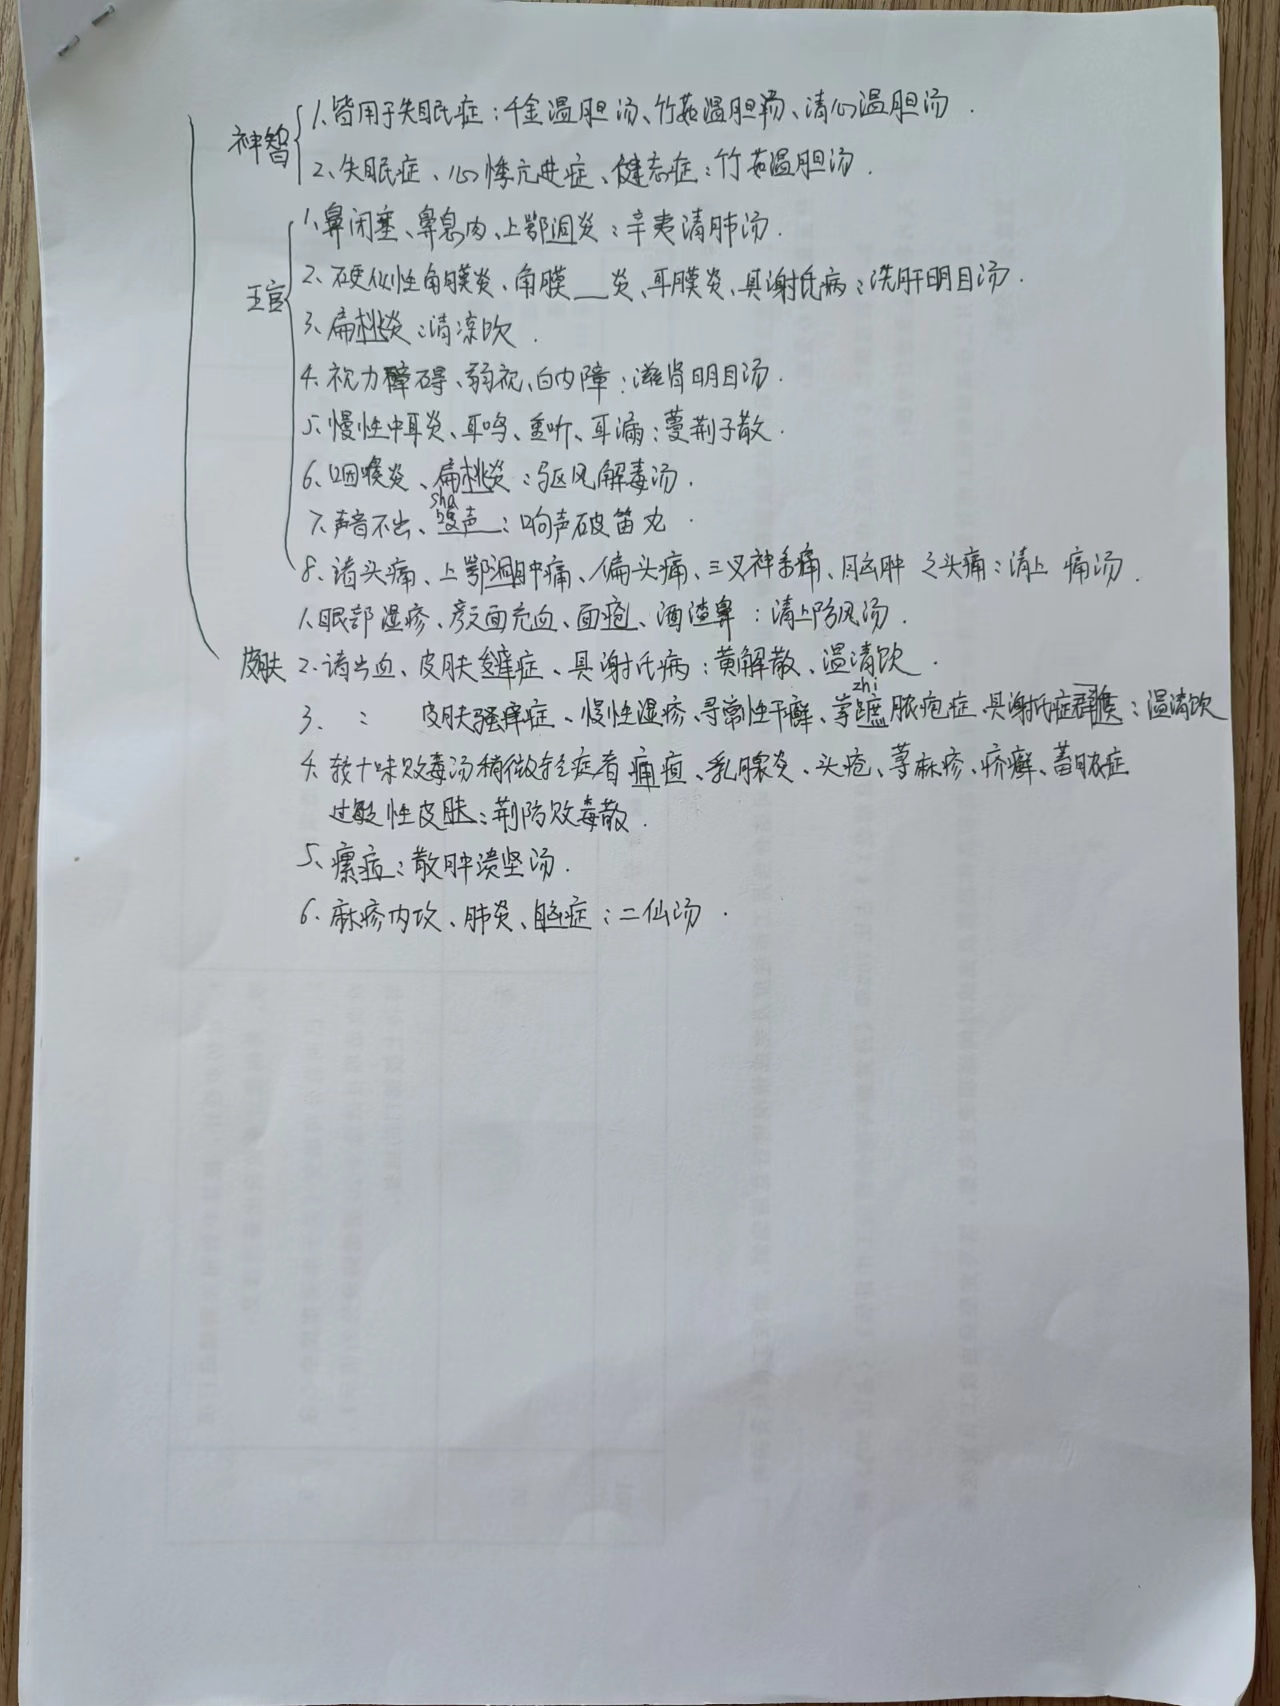 神智
1、皆用于失眠症：千金温胆汤、竹茹温胆汤、清心温胆汤.
2、失眠症、心悸亢进症、健忘症：竹茹温胆汤.
王官
1、鼻闭塞、鼻息肉、上鄂洞炎：辛夷清肺汤.
2、硬似性角膜炎、角膜__炎、耳膜炎、具谢氏病：洗肝明目汤.
3、扁桃炎：清凉饮.
4、视力障碍、弱视、白内障：滋肾明目汤.
5、慢性中耳炎、耳鸣、重听、耳漏：蔓荆子散.
6、咽喉炎、扁桃炎：驱风解毒汤.
sha
7、声音不出、嗄声：响声破笛丸.
8、诸头痛、上鄂洞肿痛、偏头痛、三叉神系痛、脑肿之头痛：清上 痛汤.
1、眼部湿疹、颜面充血、面疱、酒渣鼻：清上防风汤.
皮肤 2、诸出血、皮肤痒症、具谢氏病：黄解散、温清饮.
zhi
3、： 皮肤骚痒症、慢性湿疹、寻常性干癣、掌蹠脓疱症、具谢氏症候群：温清饮
4、较十味败毒汤稍微轻症者 痈疽、乳腺炎、头疮、荨麻疹、疥癣、蓄脓症
过敏性皮肤：荆防败毒散.
5、瘰疬：散肿溃坚汤.
6、麻疹内攻、肺炎、脑症：二仙汤.